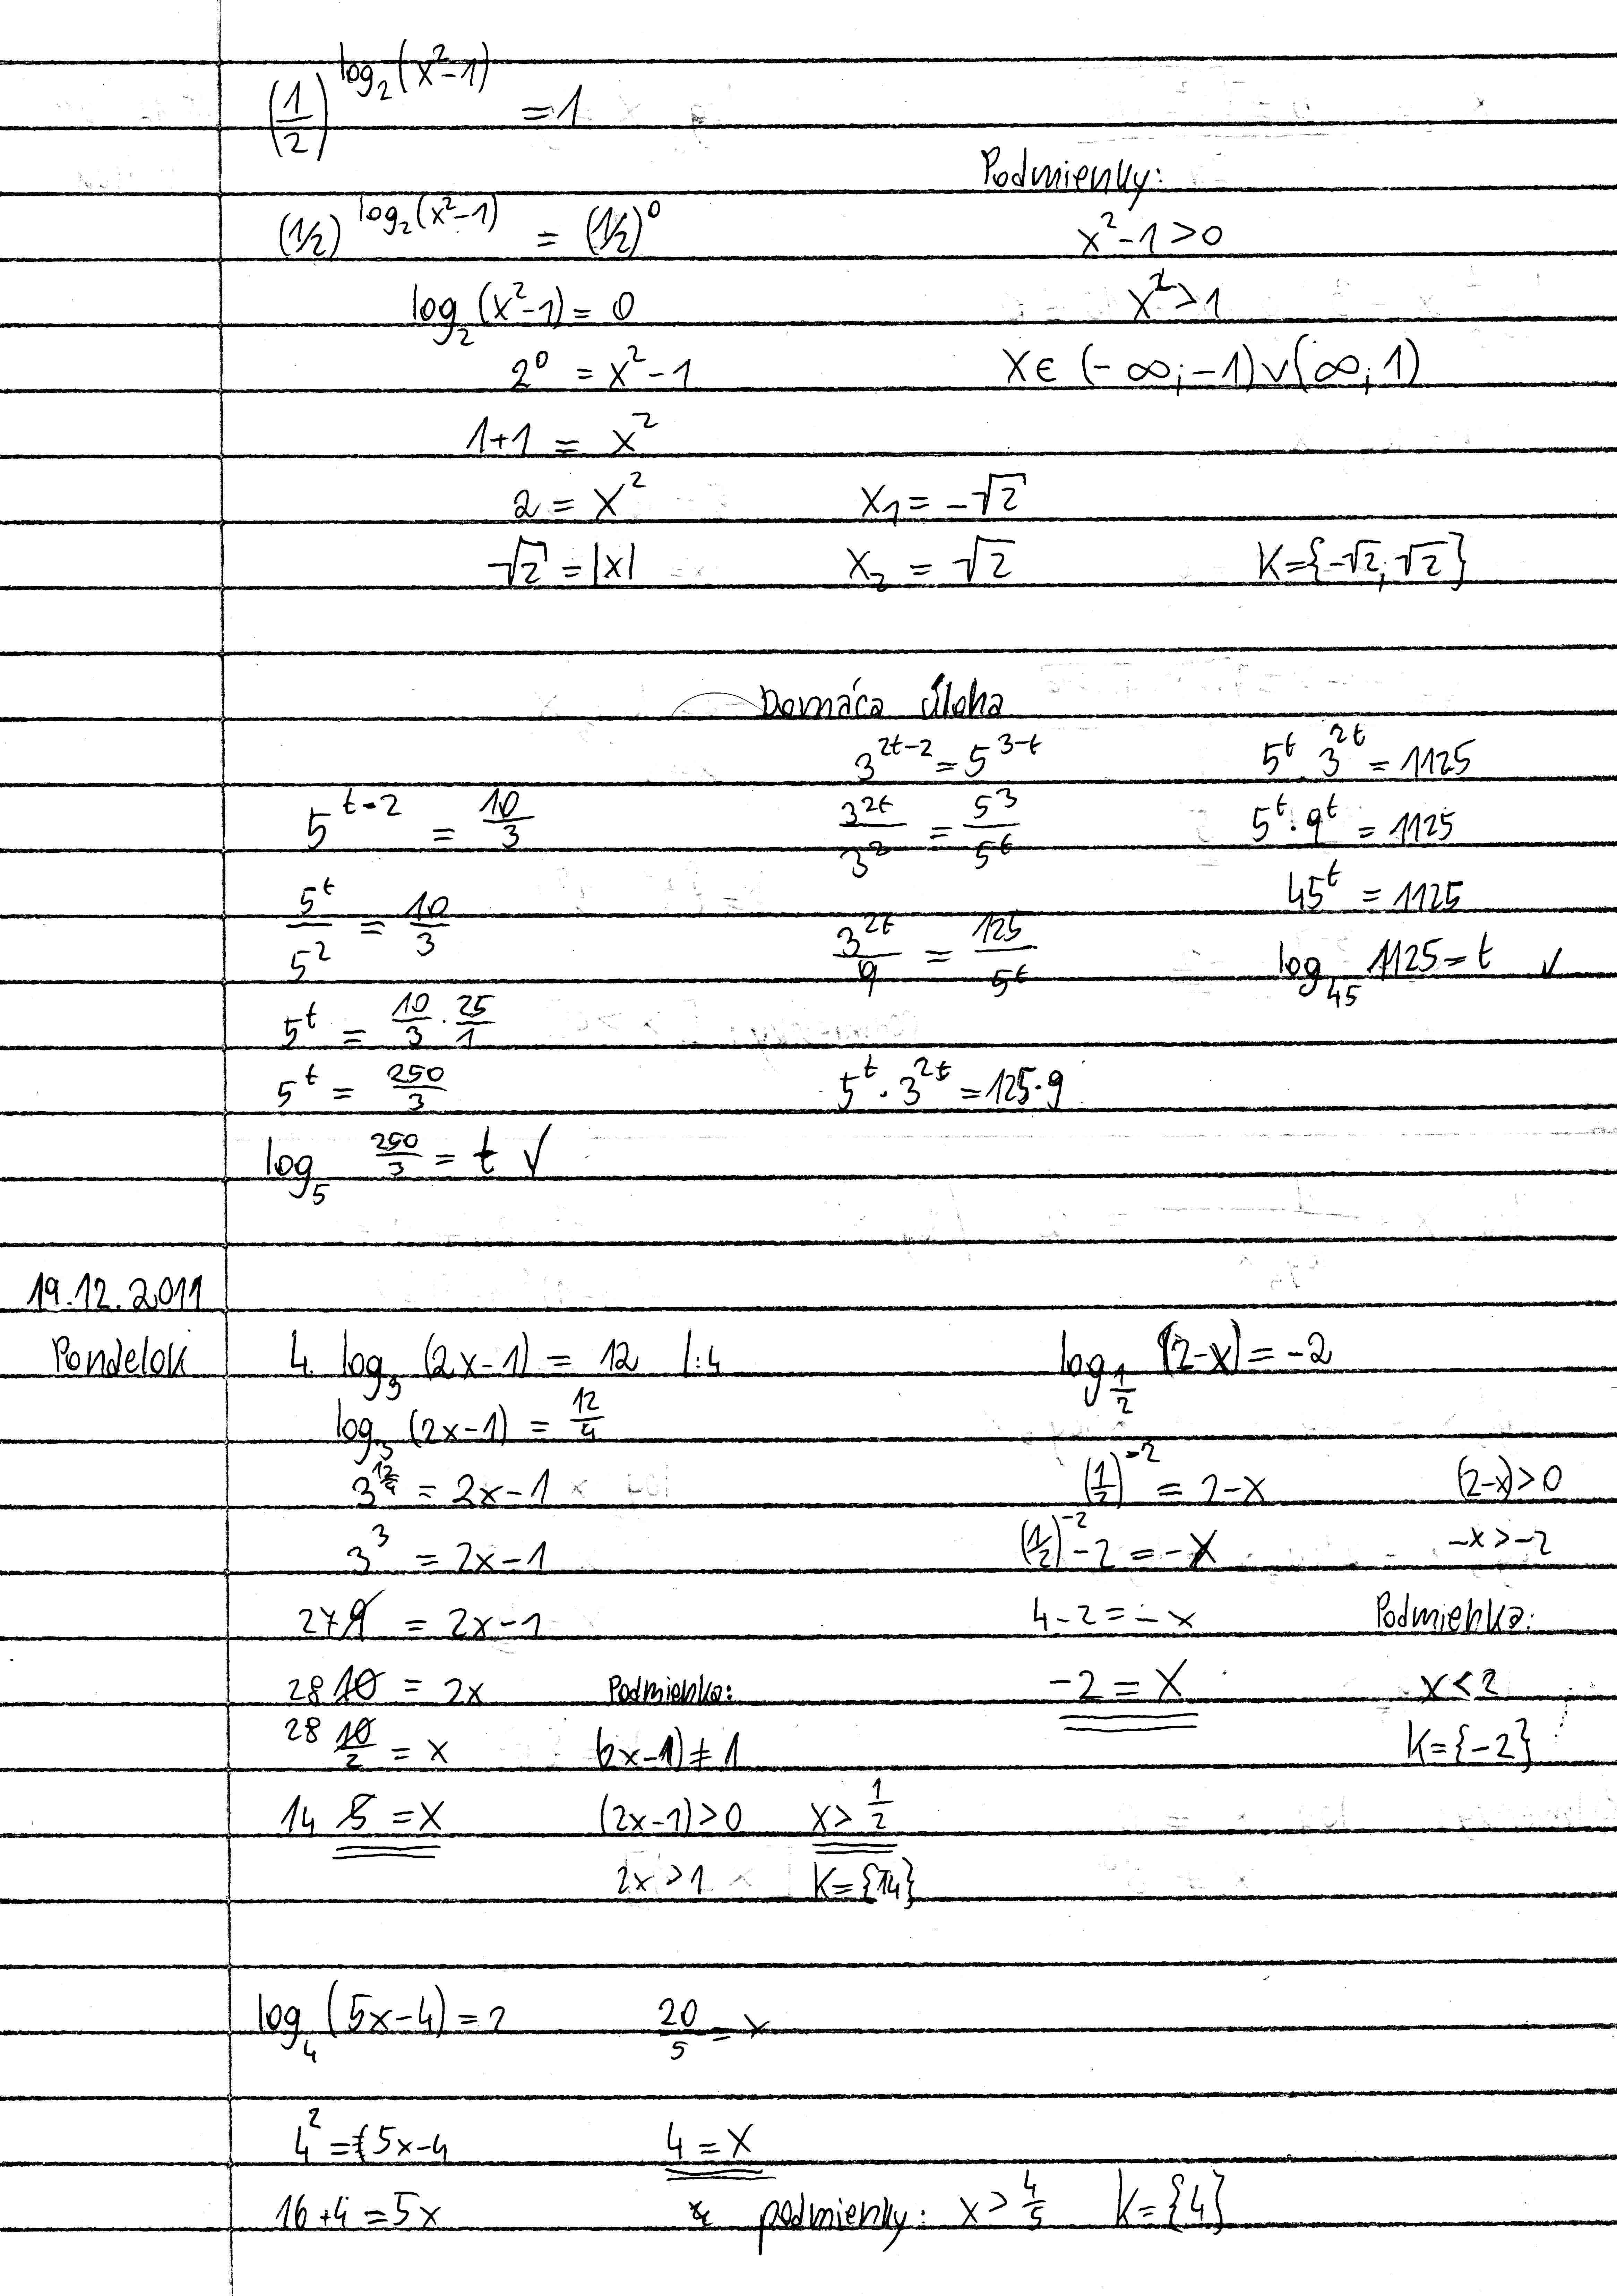 (1/2)^log₂(x²-1) = 1
Podmienky:
(1/2)^log₂(x²-1) = (1/2)⁰
x²-1>0
log₂(x²-1) = 0
x²>1
2⁰ = x²-1
X∈ (-∞; -1)∨(∞; 1)
1+1 = x²
2 = x²
x₁ = -√2
√2 = |x|
x₂ = √2
K={-√2; √2}
Domáca Úloha
5^(t-2) = 10/3
5^t/5² = 10/3
5^t = 10/3 · 25/1
5^t = 250/3
log₅ 250/3 = t √
3^(2t-2) = 5^(3-t)
3^(2t)/3² = 5³/5^t
3^(2t)/9 = 125/5^t
5^t · 3^(2t) = 125·9
5^t · 3^(2t) = 1125
5^t · 9^t = 1125
45^t = 1125
log₄₅ 1125 = t √
19.12.2011
Pondelok
4. log₃ (2x-1) = 12 /:4
log₃ (2x-1) = 12/4
3^(12/4) = 2x-1
3³ = 2x-1
27 9 = 2x-1
28 10 = 2x
28 10/2 = x
14 5 = x
Podmienka:
(2x-1) ≠ 1
(2x-1)>0
x > 1/2
2x>1
K={14}
log_(1/2) (2-x) = -2
(1/2)^-2 = 2-x
(2-x)>0
(1/2)^-2 -2 = -x
-x>-2
4-2 = -x
Podmienka:
-2 = x
x<2
K={-2}
log₄ (5x-4) = 2
20/5 = x
4² = 5x-4
4 = x
16+4 = 5x
podmienky: x > 4/5 K={4}